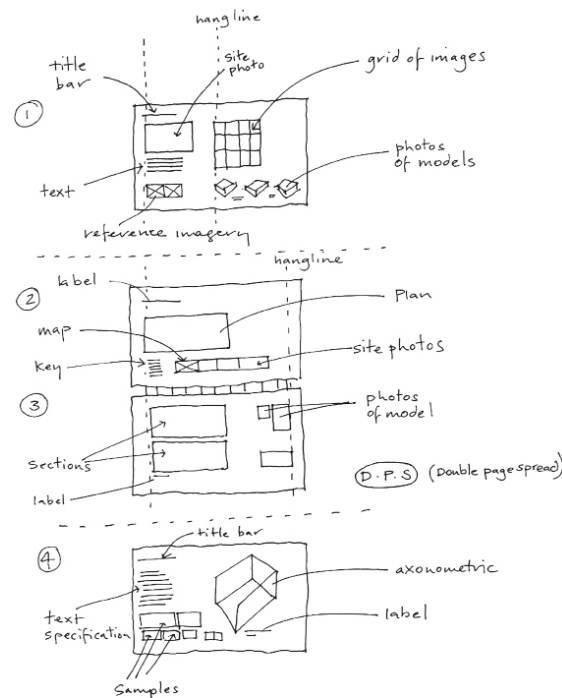 hangline
title
bar
site
photo
grid of images
①
text
photos
of models
reference imagery
hangline
label
②
Plan
map
site photos
key
③
photos
of model
sections
D.P.S (Double page spread)
label
④
title bar
axonometric
text
specification
label
Samples